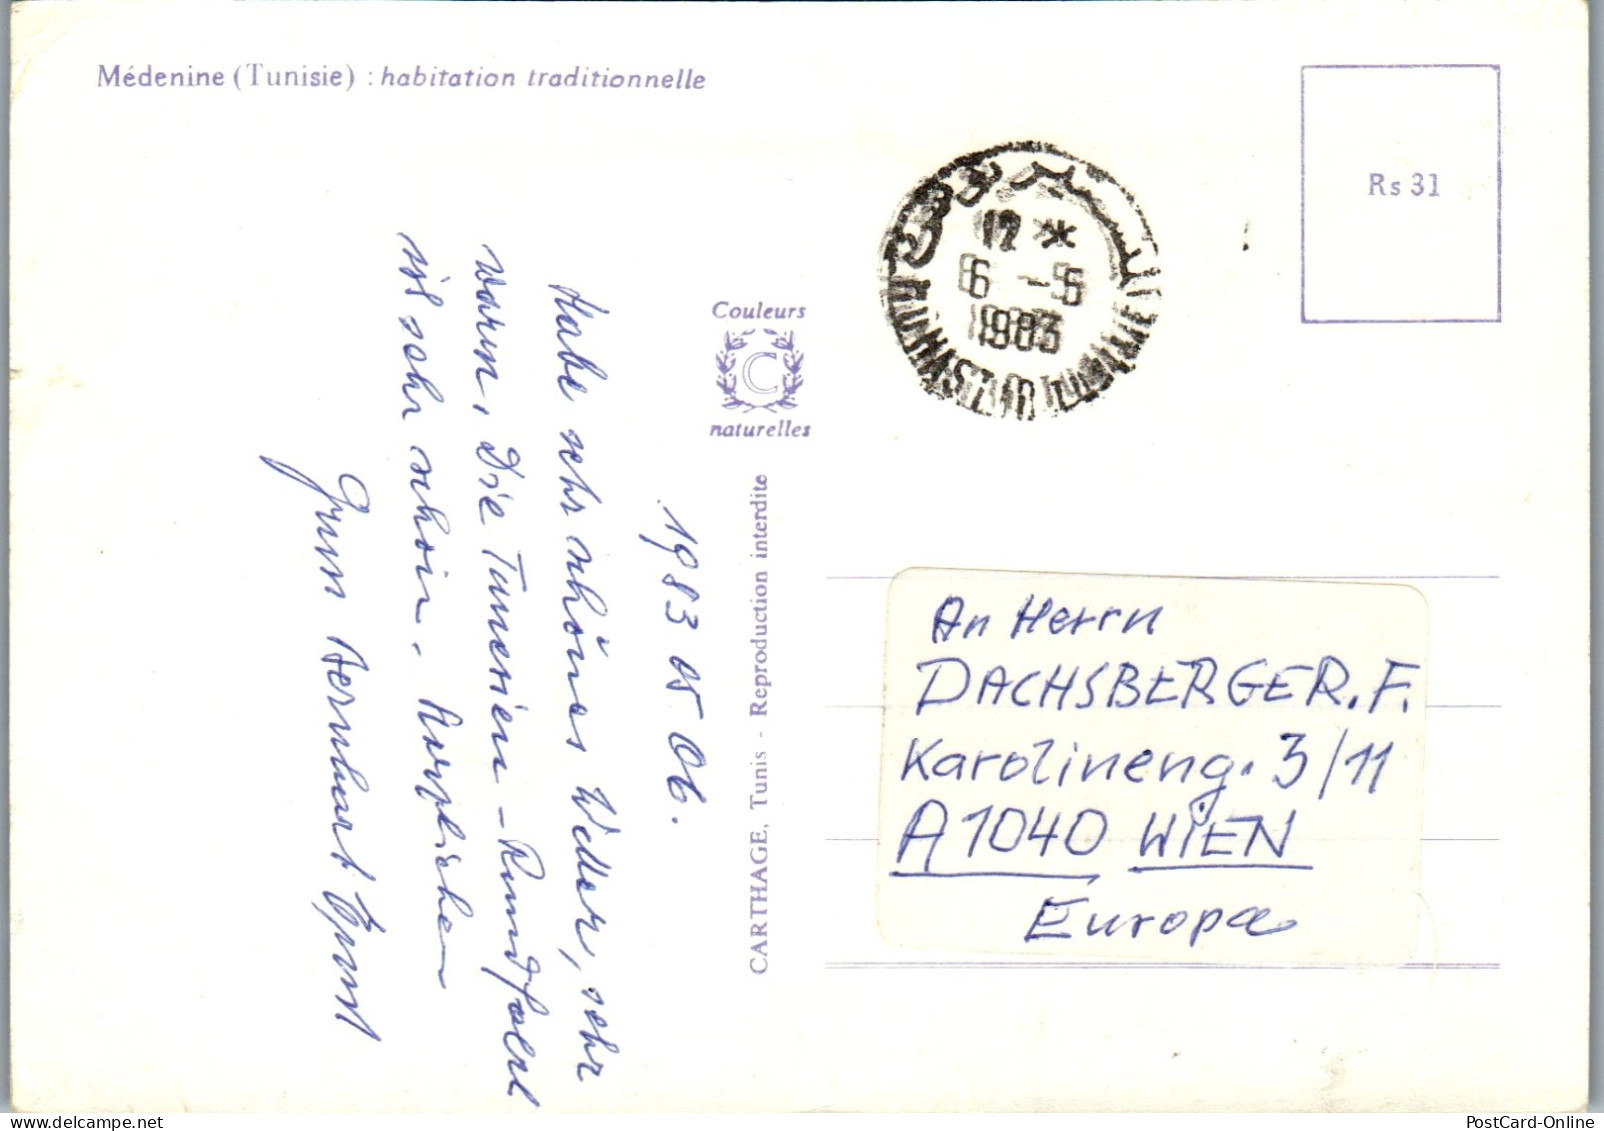 Médenine (Tunisie) : habitation traditionnelle
Rs 31
12 *
6 - 5
1983
Couleurs
C
naturelles
CARTHAGE, Tunis - Reproduction interdite
1983 05 06.
Habe sehr schönes Wetter, sehr
warm. Die Tunesien - Rundfart
ist sehr schön. Herzlichen
Gruss
An Herrn
DACHSBERGER. F.
Karolineng. 3/11
A 1040 WIEN
Europa
PostCard-Online